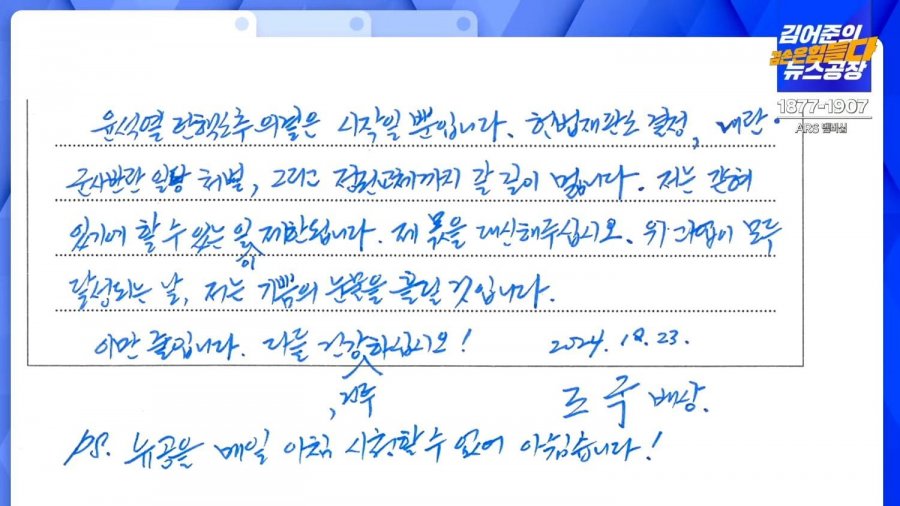 김어준의
겸손은힘들다
뉴스공장
1877-1907
ARS 멤버십
윤석열 탄핵소추 의결은 시작일 뿐입니다. 헌법재판소 결정, 내란·
군사반란 일당 처벌, 그리고 정권교체까지 갈 길이 멉니다. 저는 갇혀
있기에 할 수 있는 일 제한됩니다. 제 몫을 대신해주십시오. 위 과업이 모두
이
달성되는 날, 저는 기쁨의 눈물을 흘릴 것입니다.
이만 줄입니다. 다들 건강하십시오! 2024. 12. 23.
, 건투
조국 배상.
PS. 뉴공을 매일 아침 시청할 수 없어 아쉽습니다!